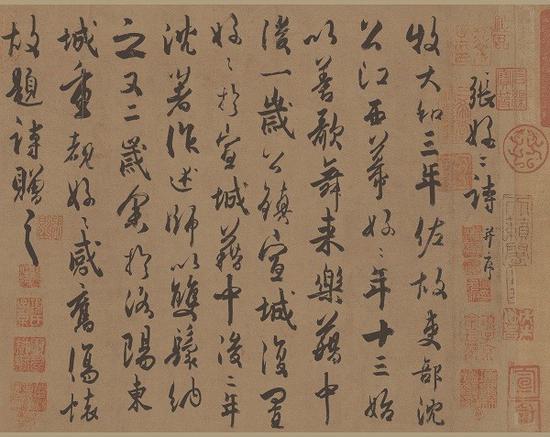 張好〻詩并序
牧大和三年佐故吏部沈
公江西幕好〻年十三始
以善歌舞来樂籍中
後一歲公鎮宣城復置
好〻於宣城籍中後二年
沈著作述師以雙鬟納
之又二歲余於洛陽東
城重覩好〻感舊傷懷
故題詩贈之